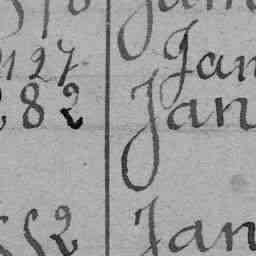 127 Jan
282 Jan
552 Jan